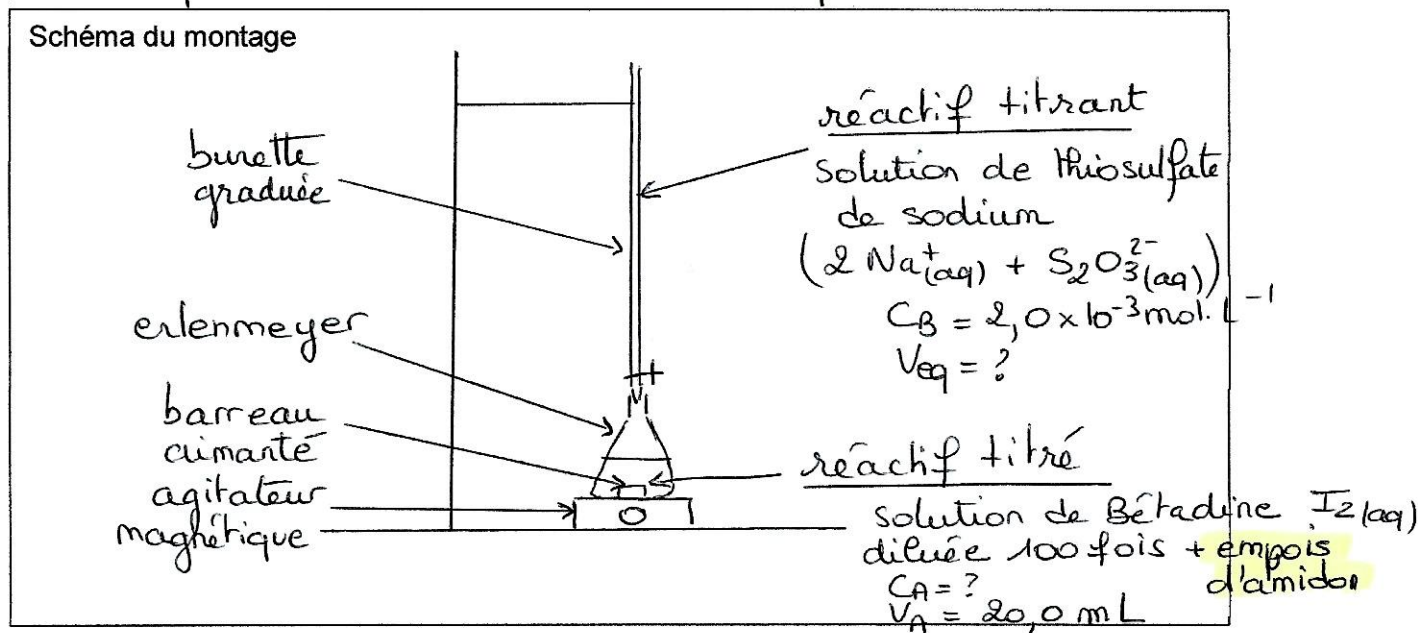 Schéma du montage
burette
graduée
erlenmeyer
barreau
aimanté
agitateur
magnétique
réactif titrant
solution de thiosulfate
de sodium
(2 Na⁺(aq) + S₂O₃²⁻(aq))
C_B = 2,0 × 10⁻³ mol. L⁻¹
V_eq = ?
réactif titré
solution de Bétadine I₂(aq)
diluée 100 fois + empois
d'amidon
C_A = ?
V_A = 20,0 mL